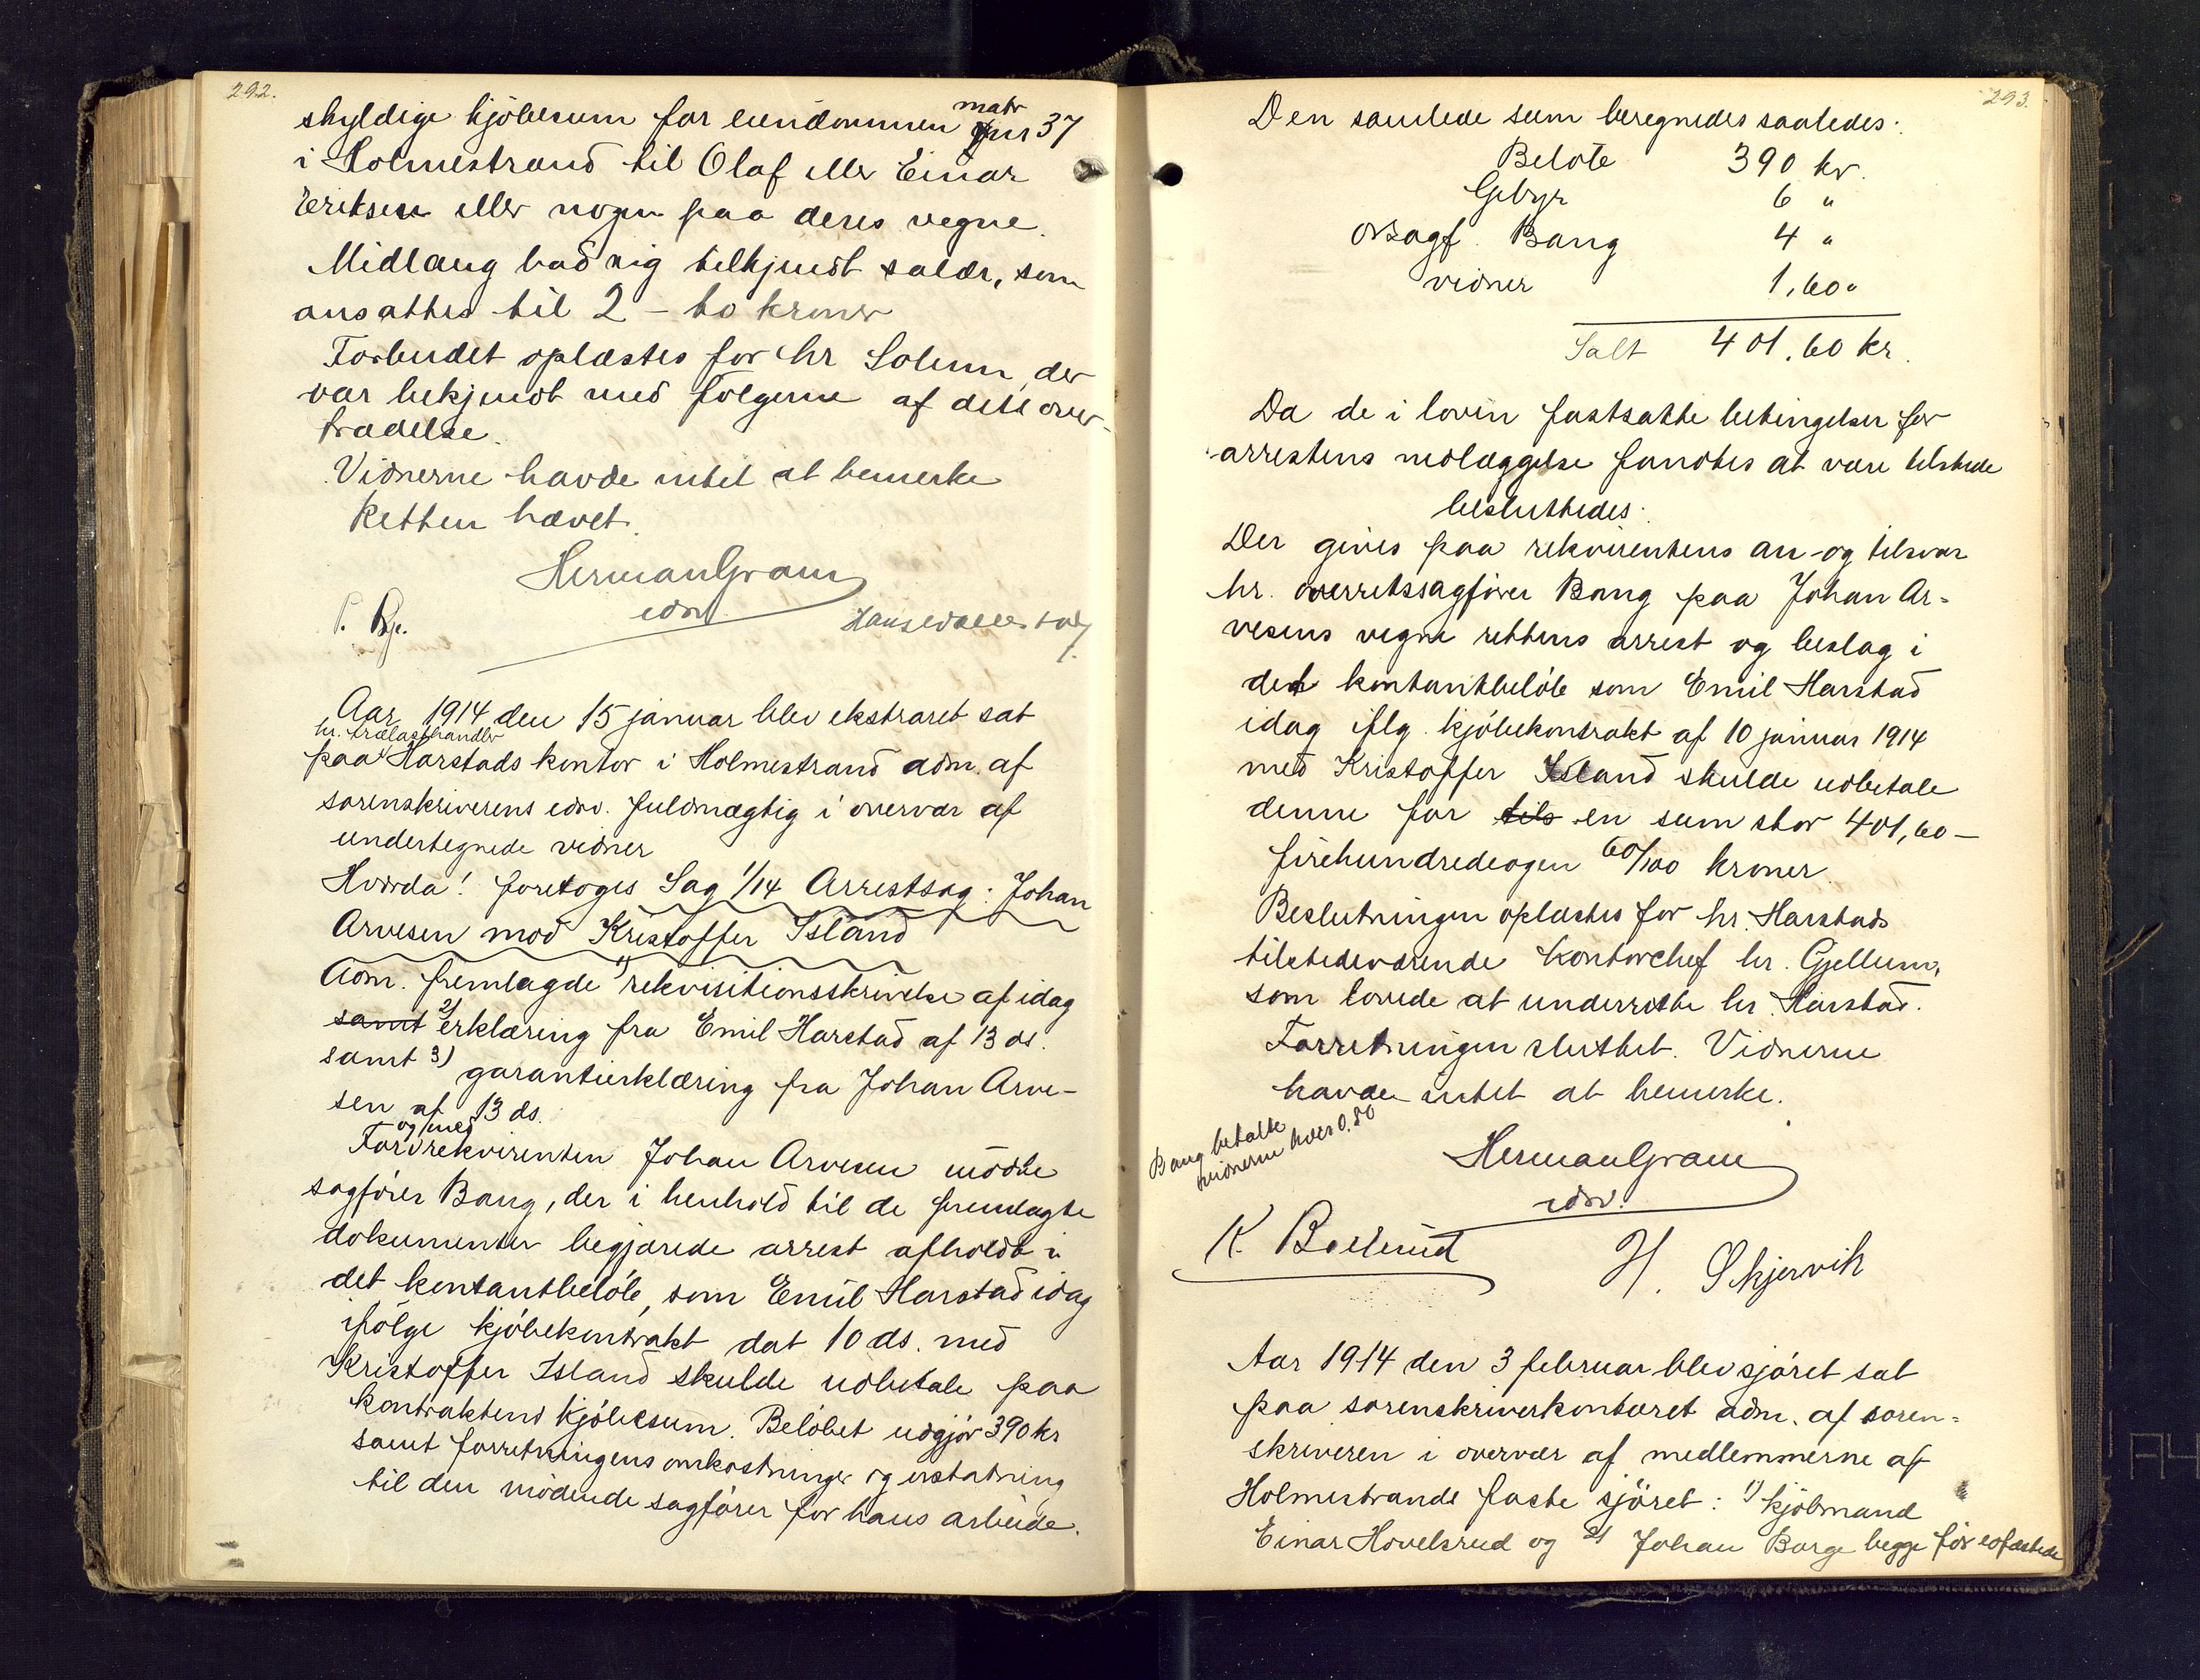 292.
skyldige kjöbesum for eiendommen matr gnr 37
i Holmestrand til Olaf eller Einar
Eriksen eller nogen paa deres vegne.
Midlaug bad sig tilkjendt salær, som
ansattes til 2 - to kroner
Forbudet oplæstes for hr Solum, der
var bekjendt med følgerne af dets over-
trædelse.
Vidnerne havde intet at bemerke
Retten hævet.
Herman Gram
edsv.
Aar 1914 den 15 januar blev ekstraret sat
hr. trælasthandler
paa Harstads kontor i Holmestrand adm. af
sorenskriverens edsv. fuldmægtig i overvær af
undertegnede vidner
Hvorda! foretoges Sag 1/14 Arrestsag: Johan
Arvesen mod Kristoffer Island
Adm. fremlagde 1) rekvisitionsskrivelse af idag
samt 2) erklæring fra Emil Harstad af 13 ds.
samt 3) garantierklæring fra Johan Arve-
sen af 13 ds.
og med
For rekvirenten Johan Arvesen mödte
sagförer Bang, der i henhold til de fremlagte
dokumenter begjærede arrest afholdt i
det kontantbelöb, som Emil Harstad idag
ifölge kjöbekontrakt dat 10 ds. med
Kristoffer Island skulde udbetale paa
kontraktens kjöbesum. Belöbet udgjör 390 kr
samt forretningens omkostninger og erstatning
til den mödende sagförer for hans arbeide.
293.
Den samlede sum beregnedes saaledes:
Belöb 390 kr.
Gebyr 6 "
Orsagf. Bang 4 "
vidner 1,60 "
Ialt 401,60 kr.
Da de i loven fastsatte betingelser for
arrestens nedlæggelse fandtes at være tilstede
besluttedes:
Der gives paa rekvirentens an- og tilsvar
hr. overretssagförer Bang paa Johan Ar-
vesens vegne rettens arrest og beslag i
det kontantbelöb som Emil Harstad
idag iflg. kjöbekontrakt af 10 januar 1914
med Kristoffer Island skulde udbetale
denne for tils en sum stor 401,60 -
firehundredeogen 60/100 kroner.
Beslutningen oplæstes for hr. Harstads
tilstedeværende kontorchef hr. Gjellum,
som lovede at underrette hr. Harstad.
Forretningen sluttet. Vidnerne
havde intet at bemerke.
Bang betalte
vidnerne hver 0.80
Herman Gram
edsv.
K. Boelrud
H. Skjervik
Aar 1914 den 3 februar blev sjöret sat
paa sorenskriverkontoret adm. af soren-
skriveren i overvær af medlemmerne af
Holmestrands faste sjöret: 1) kjöbmand
Einar Hovelsrud og 2) Johan Borge begge för edfæstede